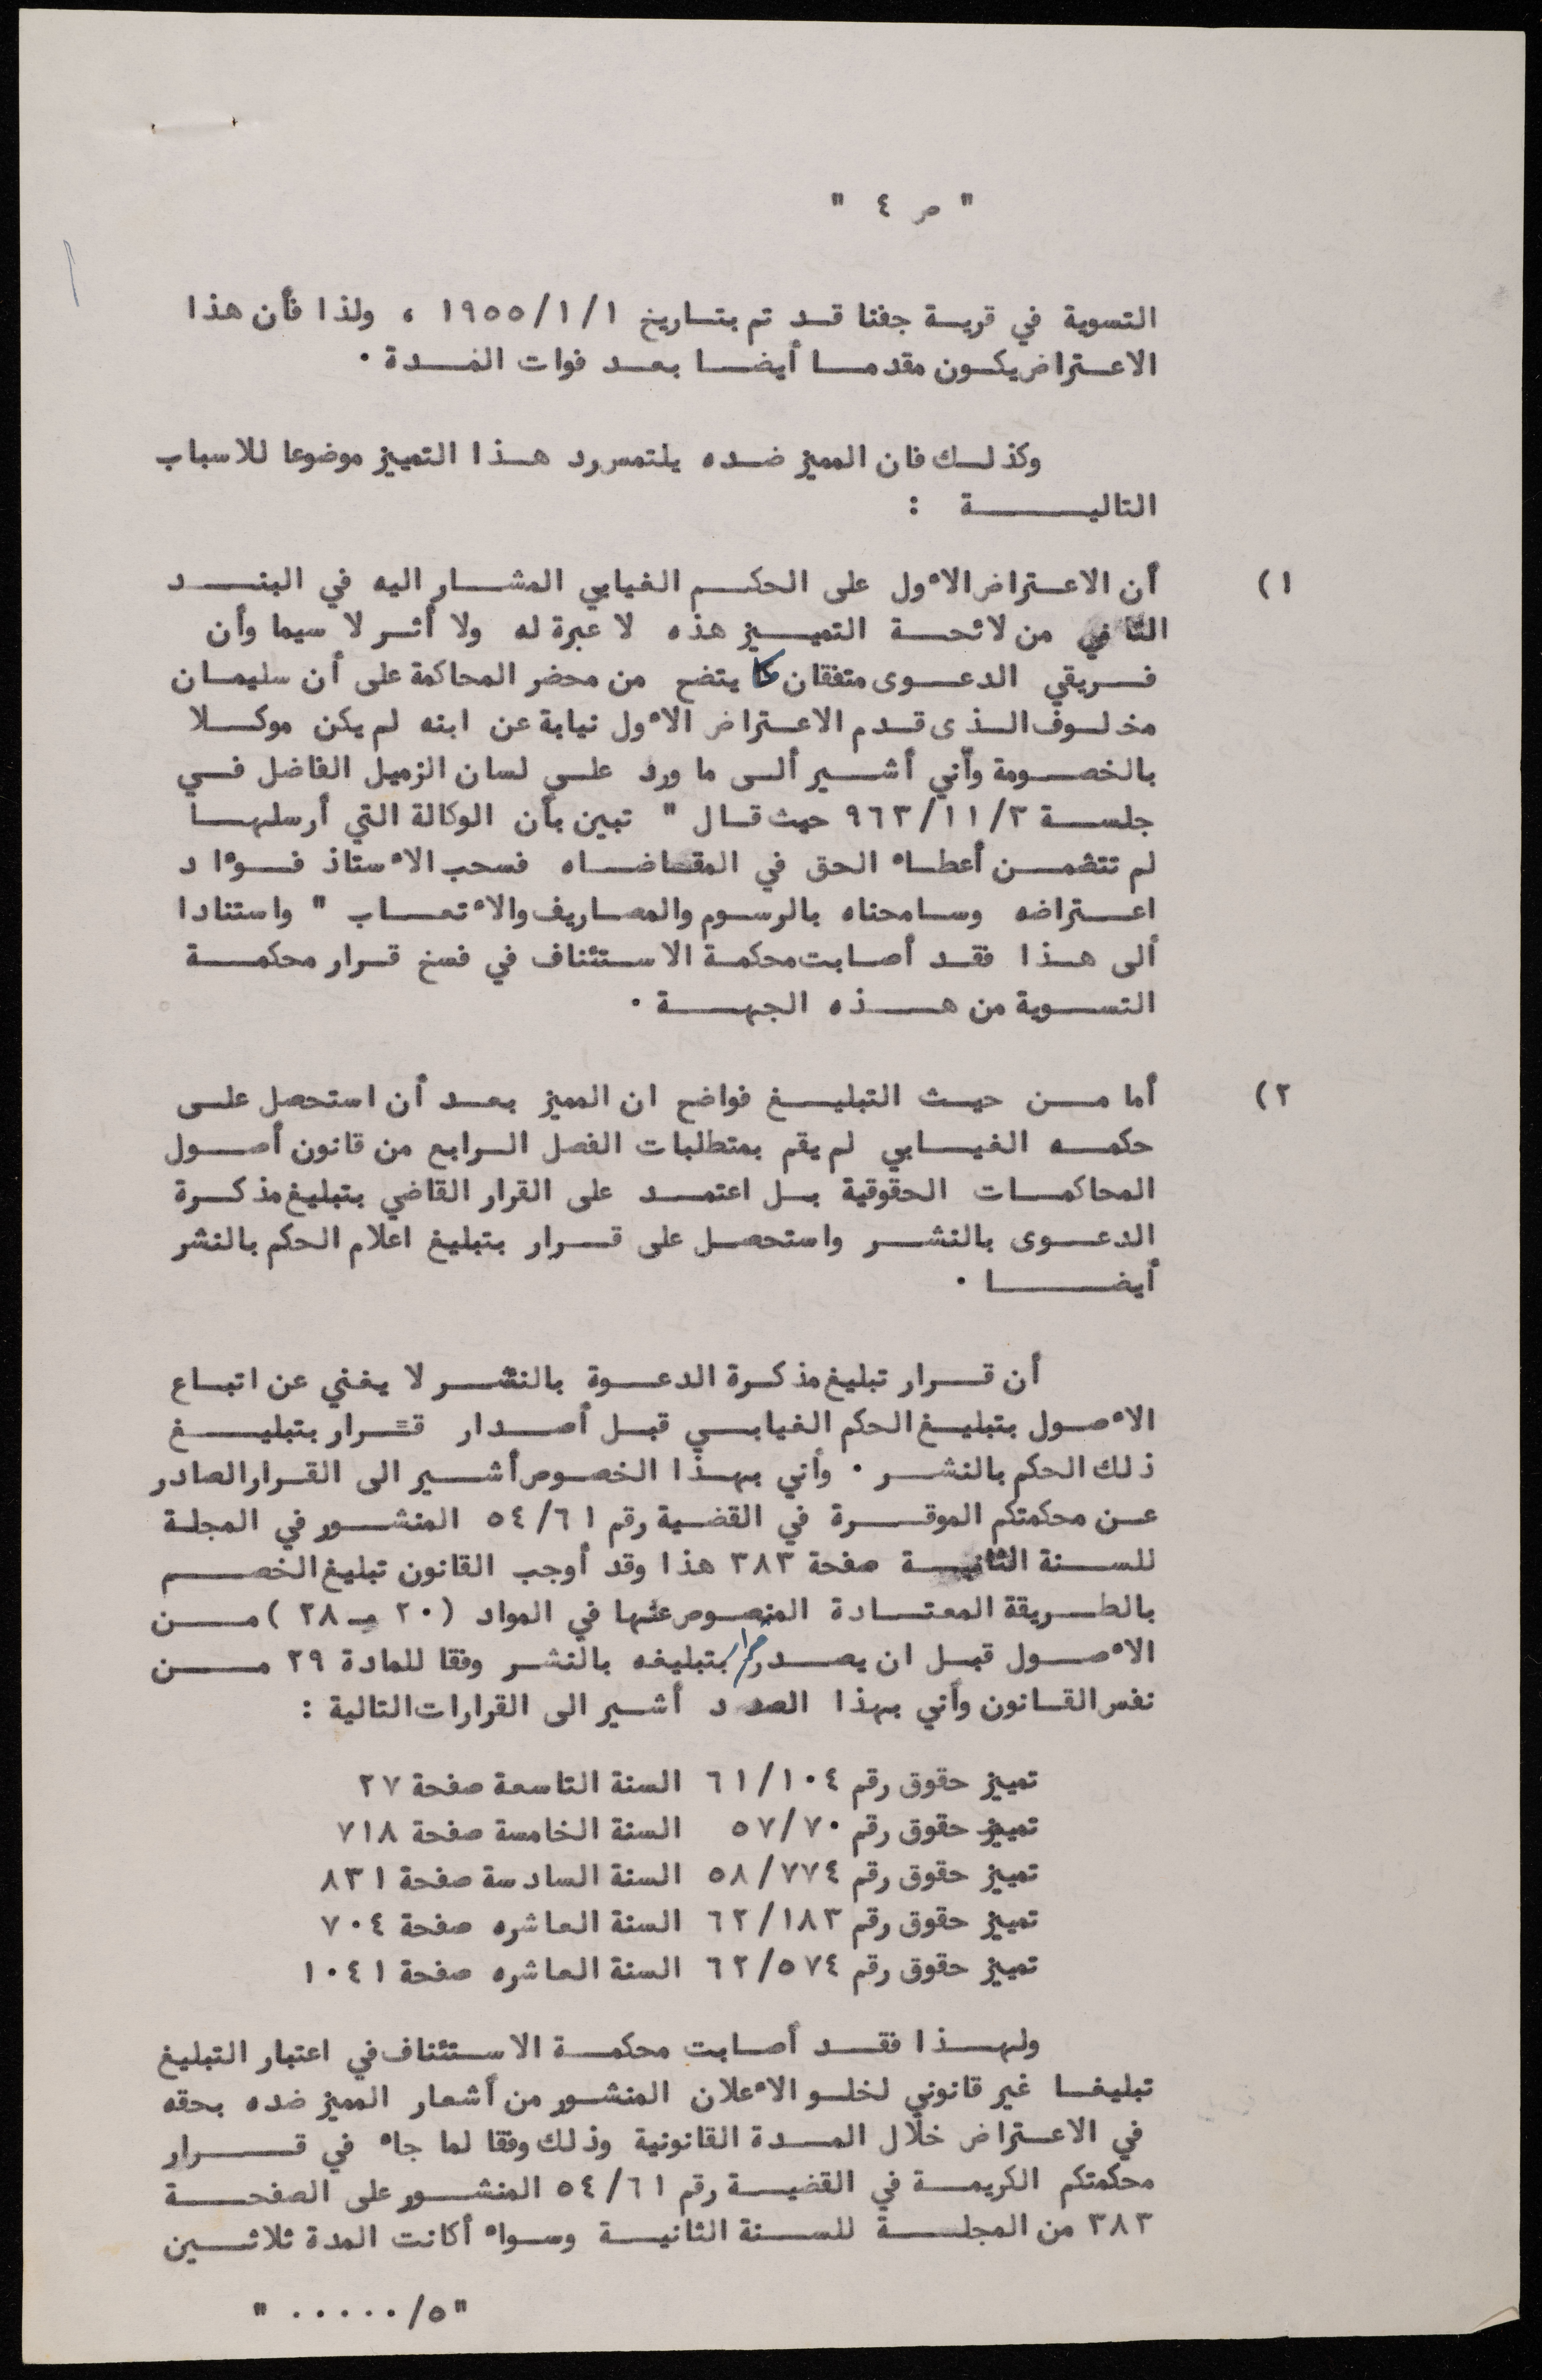 " ص ٤ "
التسوية في قرية جفنا قد تم بتاريخ ١٩٥٥/١/١ ، ولذا فأن هذا
الاعتراض يكون مقدما أيضا بعد فوات المدة ٠
وكذلك فان المميز ضده يلتمس رد هذا التمييز موضوعا للاسباب
التالية :
١) أن الاعتراض الأول على الحكم الغيابي المشار اليه في البند
الثاني من لائحة التمييز هذه لا عبرة له ولا أثر لا سيما وأن
فريقي الدعوى متفقان كما يتضح من محضر المحاكمة على أن سليمان
مخلوف الذى قدم الاعتراض الأول نيابة عن ابنه لم يكن موكلا
بالخصومة وأني أشير ألى ما ورد على لسان الزميل الفاضل في
جلسة ٩٦٣/١١/٢ حيث قال " تبين بأن الوكالة التي أرسلها
لم تتضمن أعطاء الحق في المقاضاه فسحب الأستاذ فؤاد
اعتراضه وسامحناه بالرسوم والمصاريف والأتعاب " واستنادا
ألى هذا فقد أصابت محكمة الاستئناف في فسخ قرار محكمة
التسوية من هذه الجهة ٠
٢) أما من حيث التبليغ فواضح ان المميز بعد أن استحصل على
حكمه الغيابي لم يقم بمتطلبات الفصل الرابع من قانون أصول
المحاكمات الحقوقية بل اعتمد على القرار القاضي بتبليغ مذكرة
الدعوى بالنشر واستحصل على قرار بتبليغ اعلام الحكم بالنشر
أيضا ٠
أن قرار تبليغ مذكرة الدعوة بالنشر لا يغني عن اتباع
الأصول بتبليغ الحكم الغيابي قبل أصدار قرار بتبليغ
ذلك الحكم بالنشر ٠ وأني بهذا الخصوص أشير الى القرار الصادر
عن محكمتكم الموقرة في القضية رقم ٥٤/٦١ المنشور في المجلة
للسنة الثانية صفحة ٣٨٣ هذا وقد أوجب القانون تبليغ الخصم
بالطريقة المعتادة المنصوص عنها في المواد (٢٠ - ٢٨ ) من
الأصول قبل ان يصدر قرار بتبليغه بالنشر وفقا للمادة ٢٩ من
نفس القانون وأني بهذا الصدد أشير الى القرارات التالية :
تمييز حقوق رقم ٦١/١٠٤ السنة التاسعة صفحة ٢٧
تمييز حقوق رقم ٥٧/٧٠ السنة الخامسة صفحة ٧١٨
تمييز حقوق رقم ٥٨/٧٧٤ السنة السادسة صفحة ٨٣١
تمييز حقوق رقم ٦٢/١٨٣ السنة العاشره صفحة ٧٠٤
تمييز حقوق رقم ٦٢/٥٧٤ السنة العاشره صفحة ١٠٤١
ولهذا فقد أصابت محكمة الاستئناف في اعتبار التبليغ
تبليغا غير قانوني لخلو الأعلان المنشور من أشعار المميز ضده بحقه
في الاعتراض خلال المدة القانونية وذلك وفقا لما جاء في قرار
محكمتكم الكريمة في القضية رقم ٥٤/٦١ المنشور على الصفحة
٣٨٣ من المجلسة للسنة الثانية وسواء أكانت المدة ثلاثين
"٥/ ٠٠٠٠٠ "